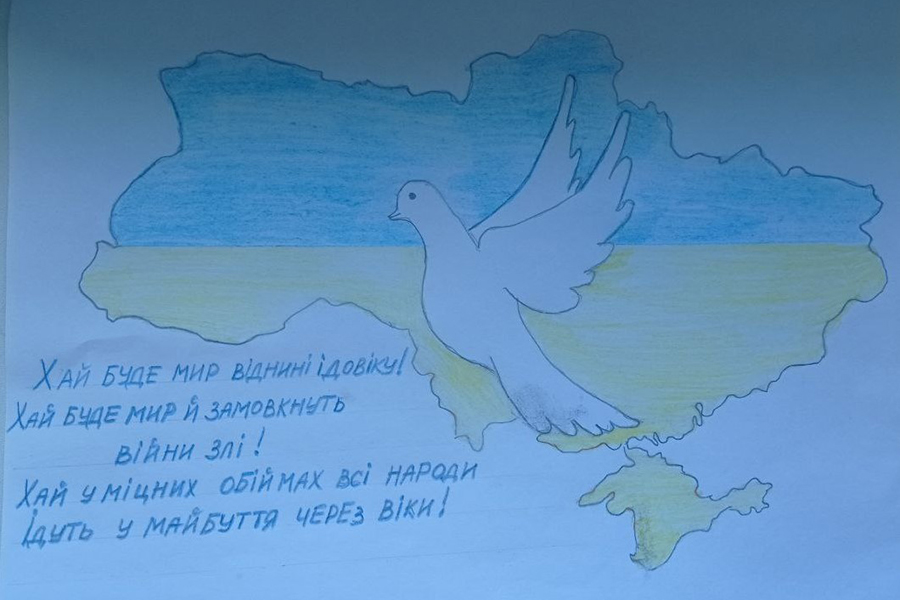 Хай буде мир віднині ідовіку!
Хай буде мир й замовкнуть
війни злі!
Хай у міцних обіймах всі народи
Ідуть у майбуття через віки!